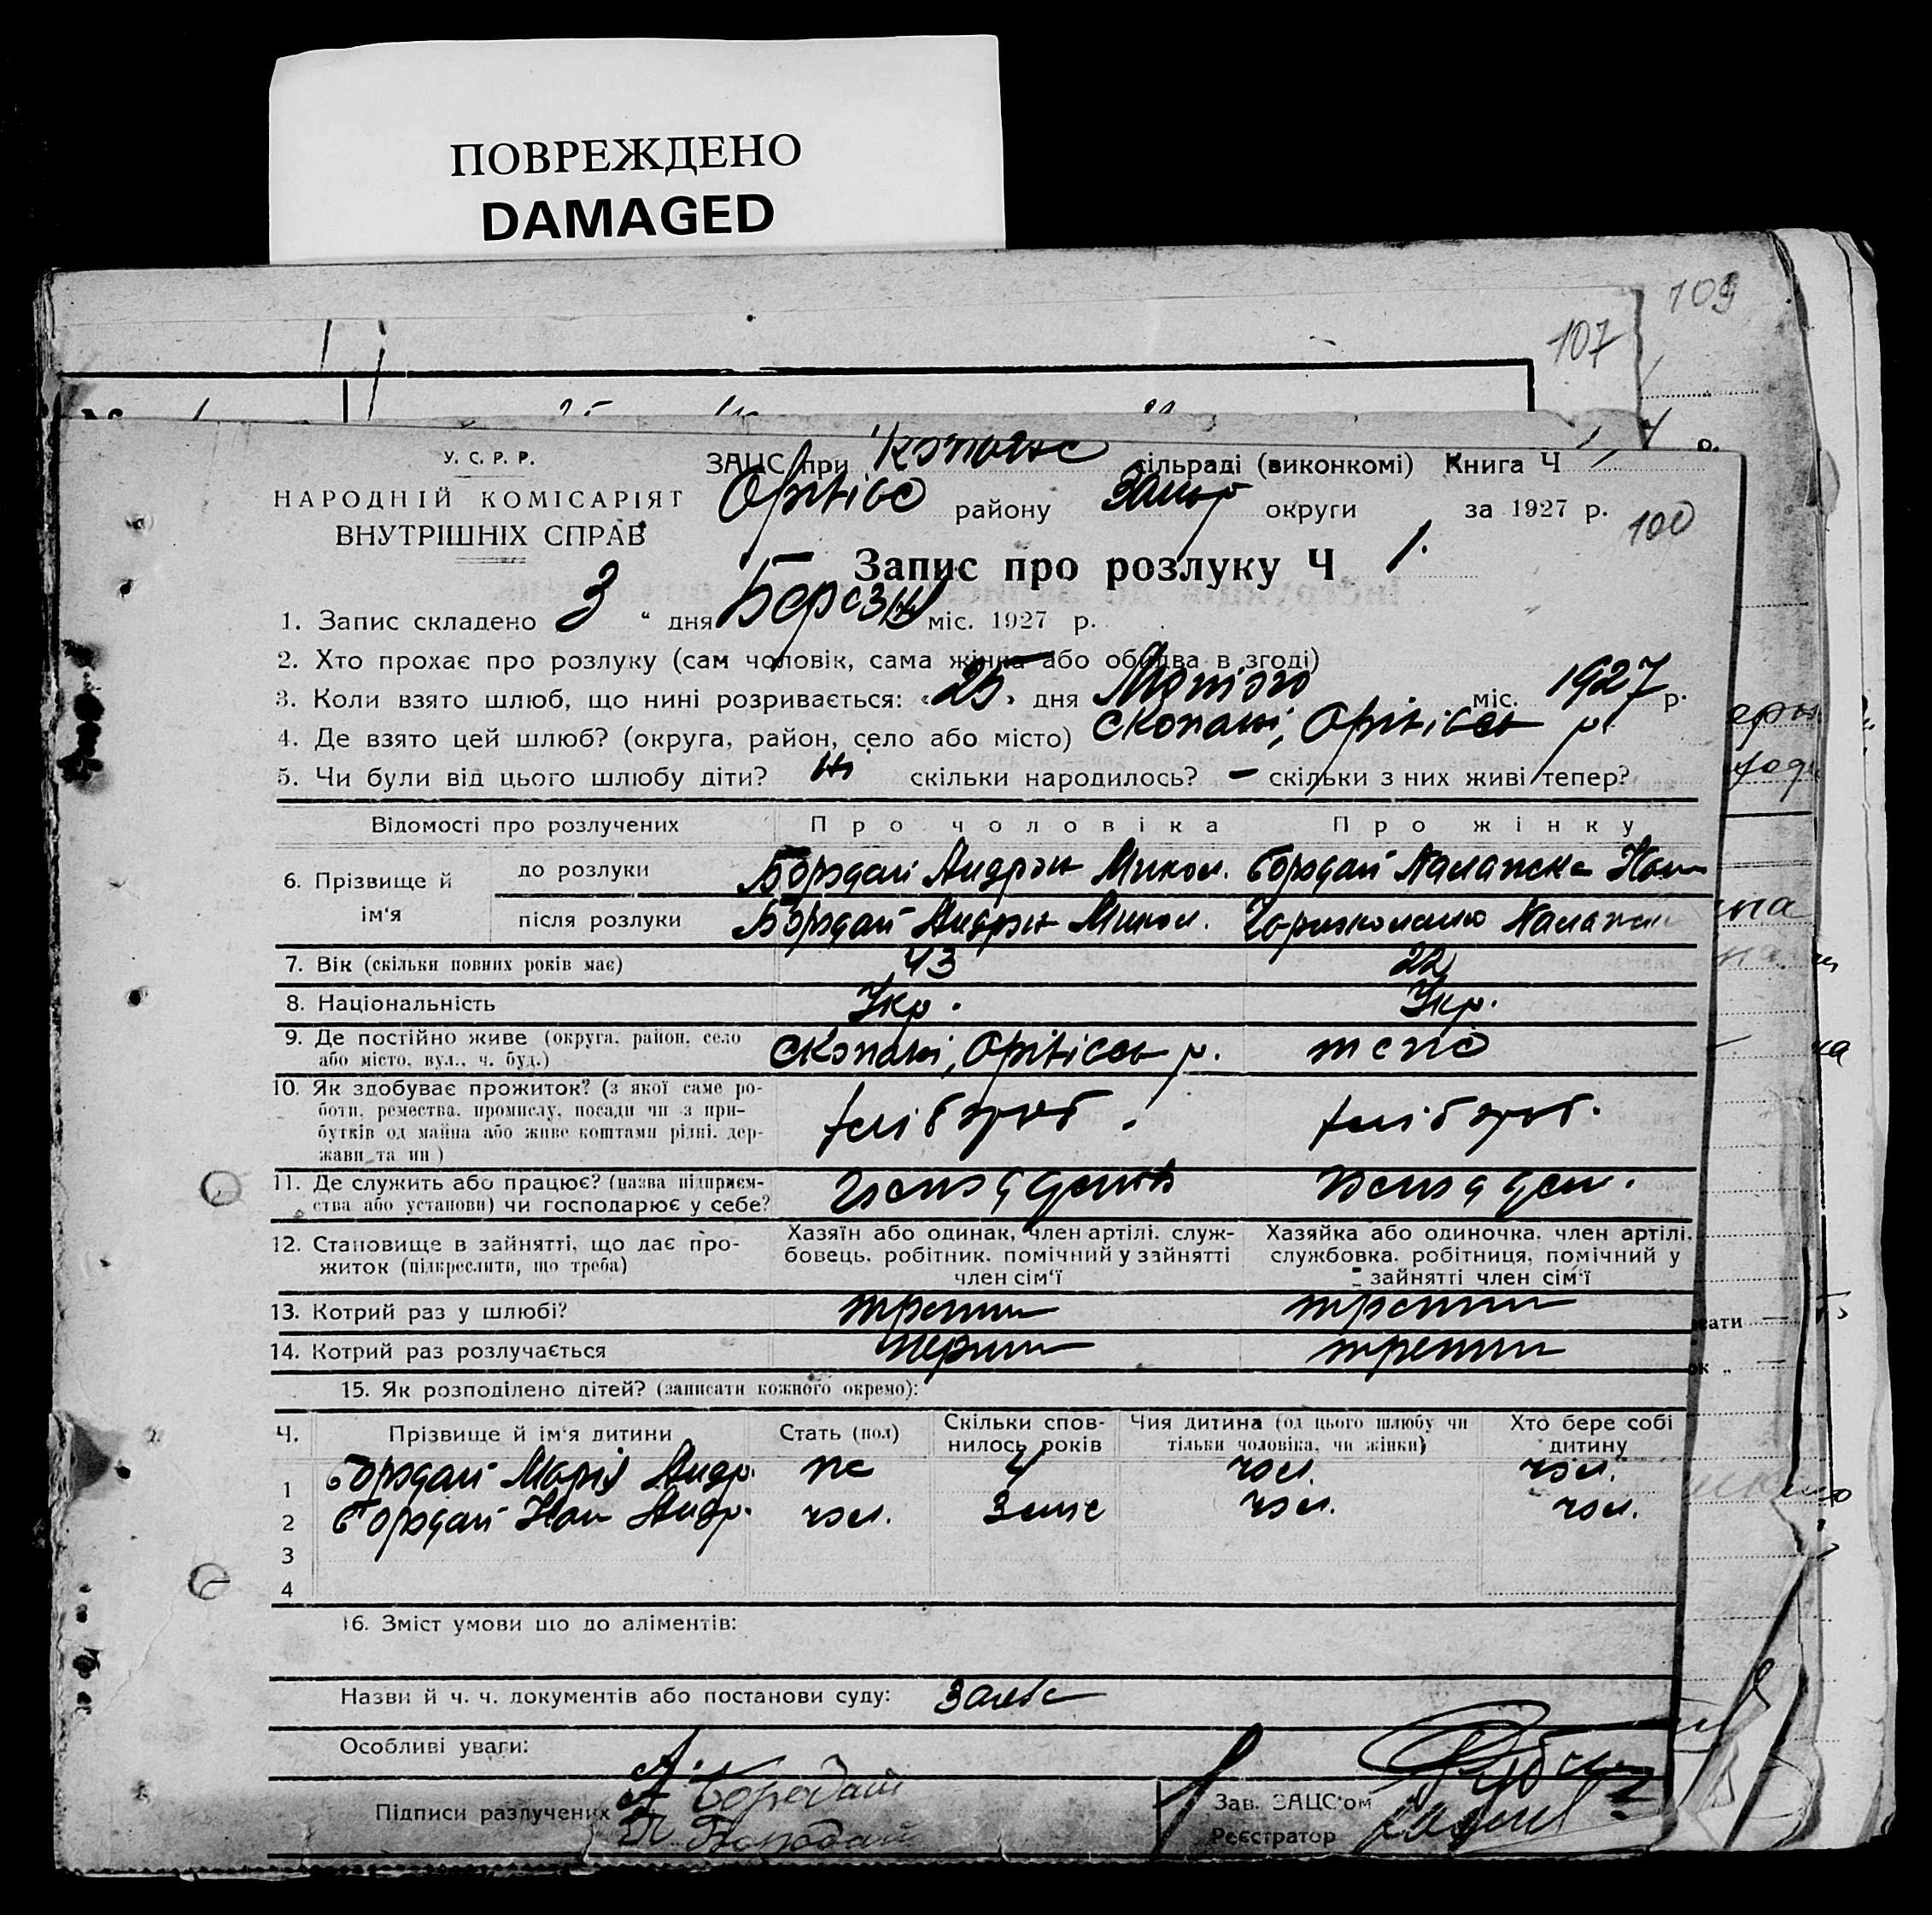 ПОВРЕЖДЕНО
DAMAGED
109
107
У. С. Р. Р.
НАРОДНІЙ КОМІСАРІЯТ
ВНУТРІШНІХ СПРАВ
ЗАЦС при сільраді (виконкомі) Книга Ч 1
району округи за 1927 р.
100
Запис про розлуку Ч 1.
1. Запис складено 3 " дня Березня міс. 1927 р.
2. Хто прохає про розлуку (сам чоловік, сама жінка або обидва в згоді)
3. Коли взято шлюб, що нині розривається: «25» дня міс. 1927 р.
4. Де взято цей шлюб? (округа, район, село або місто) Скопані, Оріхівськ р.
5. Чи були від цього шлюбу діти? ні скільки народилось? – скільки з них живі тепер?
Відомості про розлучених Про чоловіка Про жінку
6. Прізвище й ім'я
до розлуки Бородай Андрон Микол. Бородай Палажка
після розлуки Бородай Андрон Микол. Палажка
7. Вік (скільки повних років має) 43 22
8. Національність Укр. Укр.
9. Де постійно живе (округа, район, село Скопані, Оріхівськ р. теж
або місто, вул., ч. буд.)
10. Як здобуває прожиток? (з якої саме ро-
боти, ремества, промислу, посади чи з при- хлібороб. хлібороб.
бутків од майна або живе коштами рідні, дер-
жави та ин)
11. Де служить або працює? (назва підприєм-
ства або установи) чи господарює у себе?
12. Становище в зайнятті, що дає про-
житок (підкреслити, що треба)
Хазяїн або одинак, член артілі, служ-
бовець, робітник, помічний у зайнятті
член сім'ї
Хазяйка або одиночка, член артілі,
службовка, робітниця, помічний у
зайнятті член сім'ї
13. Котрий раз у шлюбі? третій третій
14. Котрий раз розлучається перший третій
15. Як розподілено дітей? (записати кожного окремо):
Ч. Прізвище й ім'я дитини Стать (пол) Скільки спов-
нилось років Чия дитина (од цього шлюбу чи
тільки чоловіка, чи жінки) Хто бере собі
дитину
1 Бородай Марія Андр. ж 4 чол. чол.
2 Бородай Іван Андр. чол. чол. чол.
3
4
16. Зміст умови що до аліментів:
Назви й ч. ч. документів або постанови суду:
Особливі уваги:
Підписи разлучених А. Бородай
П Бородай
Зав. ЗАЦС'ом
Реєстратор